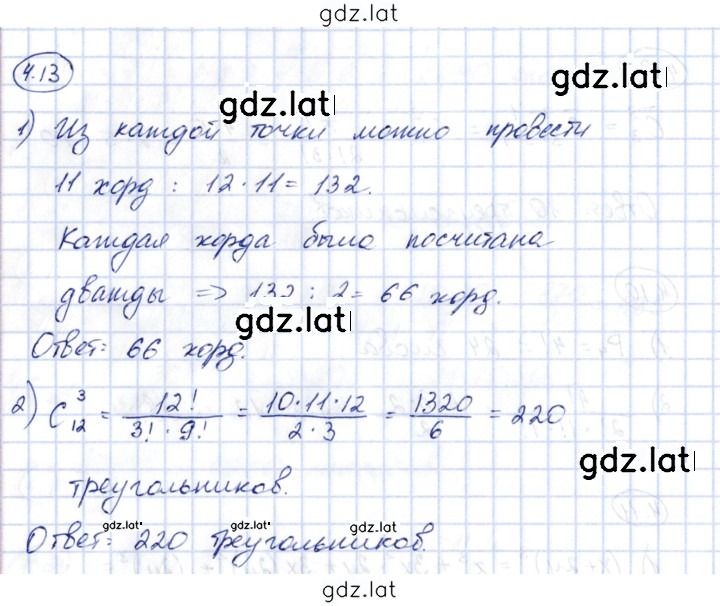 gdz.lat
4.13
gdz.lat
1) Из каждой точки можно провести
11 хорд : 12·11 = 132.
Каждая хорда была посчитана
дважды => 132 : 2 = 66 хорд.
gdz.lat
Ответ: 66 хорд.
2) C₁₂³ = 12! / (3! · 9!) = (10·11·12) / (2·3) = 1320 / 6 = 220
gdz.lat
треугольников.
gdz.lat gdz.lat gdz.lat
Ответ: 220 треугольников.
gdz.lat